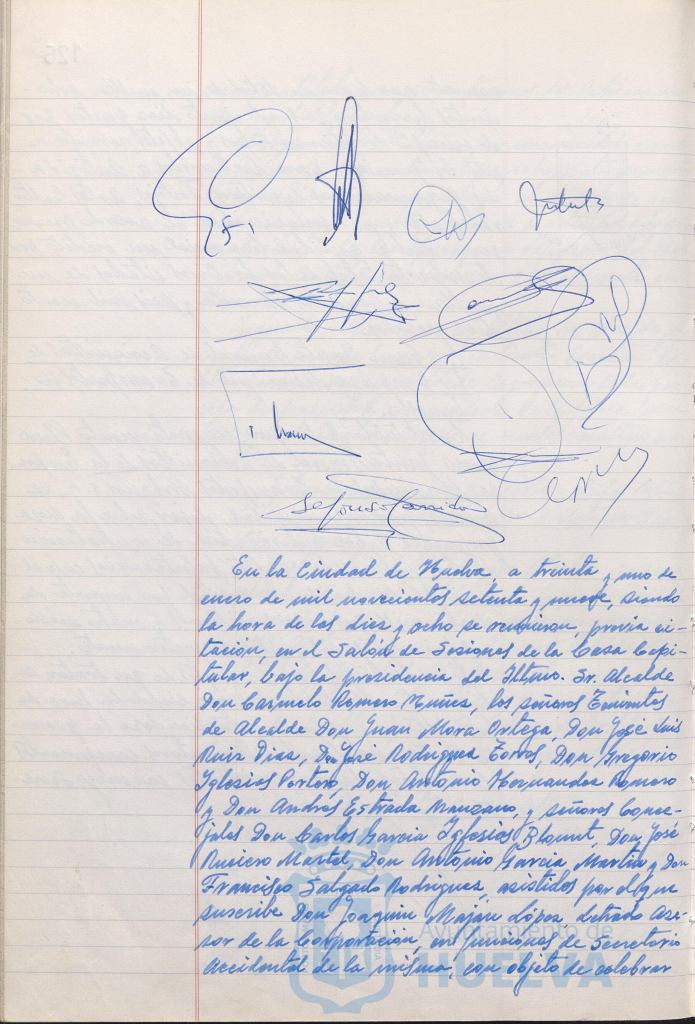 Alfonso Garrido
En la Ciudad de Huelva, a treinta y uno de
enero de mil novecientos setenta y nueve, siendo
la hora de las diez y ocho se reunieron, previa ci-
tación, en el Salón de Sesiones de la Casa Capi-
tular, bajo la presidencia del Iltmo. Sr. Alcalde
Don Carmelo Romero Núñez, los señores Tenientes
de Alcalde Don Juan Mora Ortega, Don José Luis
Ruiz Díaz, Don José Rodríguez Torres, Don Gregorio
Iglesias Portero, Don Antonio Hernandez Romero
y Don Andrés Estrada Manzano, y señores Conce-
jales Don Carlos García Iglesias Blount, Don José
Martel, Don Antonio García Martín y Don
Francisco Salgado Rodríguez, asistidos por el que
suscribe Don Joaquin Maján López, Letrado Ase-
sor de la Corporación, en funciones de Secretario
Accidental de la misma, con objeto de celebrar
Ayuntamiento de
HUELVA